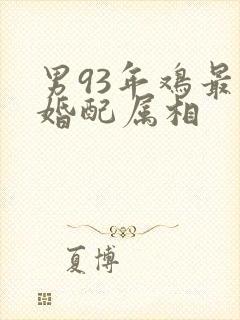 男93年鸡最
婚配属相
夏博